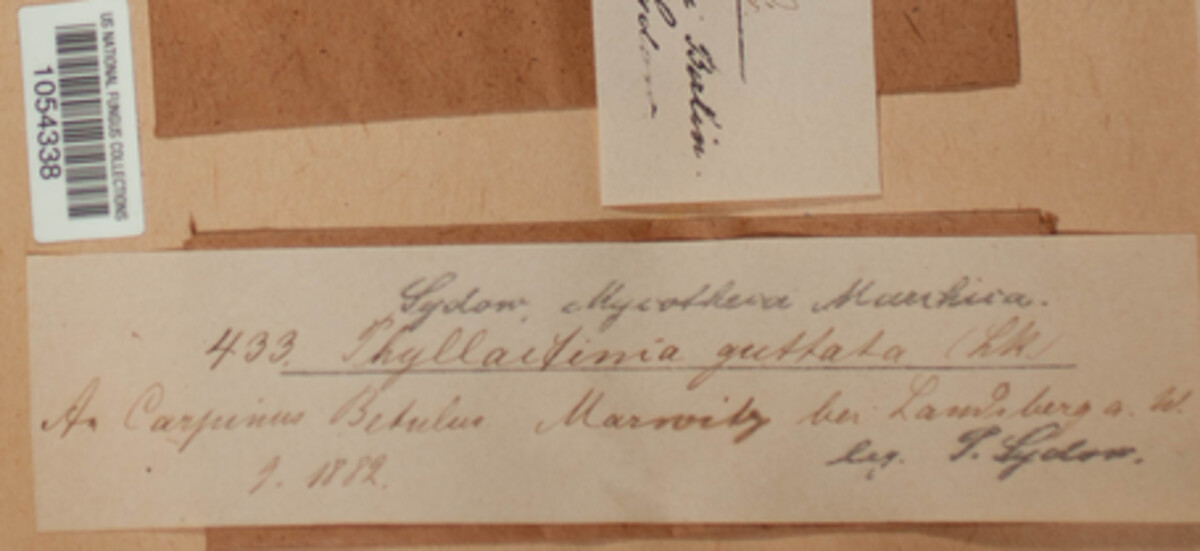 US NATIONAL FUNGUS COLLECTIONS
1054338
Berlin.
Sydow, Mycotheca Marchica.
433. Phyllactinia guttata (Lk.)
An Carpinus Betulus Marwitz bei Landsberg a. W.
9. 1882.
leg. P. Sydow.